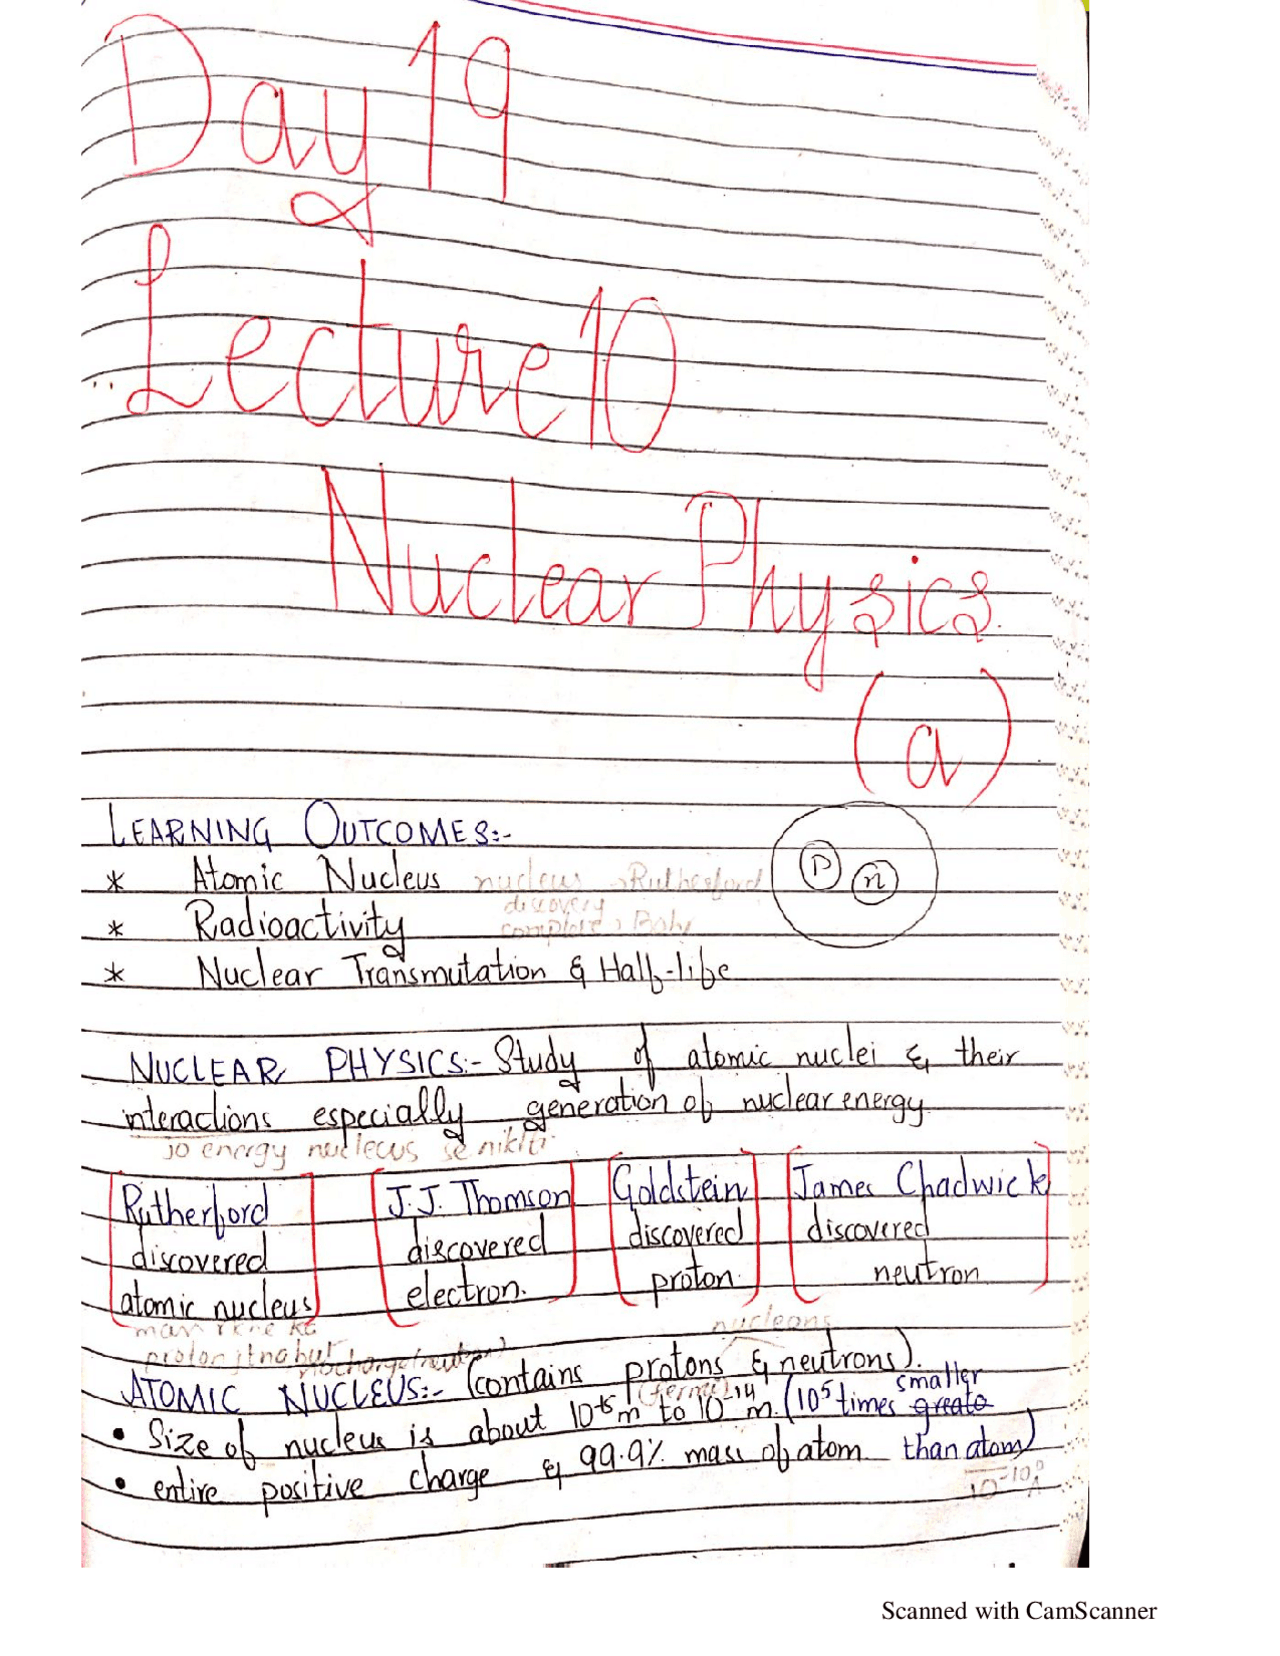 Day 19
Lecture 10
Nuclear Physics
(a)
LEARNING OUTCOMES:-
* Atomic Nucleus nucleus → Rutherford
discovery
* Radioactivity
* Nuclear Transmutation & Half-life
P n
NUCLEAR PHYSICS:- Study of atomic nuclei & their
interactions especially generation of nuclear energy
jo energy nuclecus se niklti
Rutherford
discovered
atomic nucleus
J.J. Thomson
discovered
electron.
Goldstein
discovered
proton.
James Chadwick
discovered
neutron
nucleons
ATOMIC NUCLEUS:- (contains protons & neutrons).
(fermi)
• Size of nucleus is about 10⁻¹⁵m to 10⁻¹⁴m. (10⁵ times greate smaller
than atom)
• entire positive charge & 99.9% mass of atom
10⁻¹⁰
Scanned with CamScanner